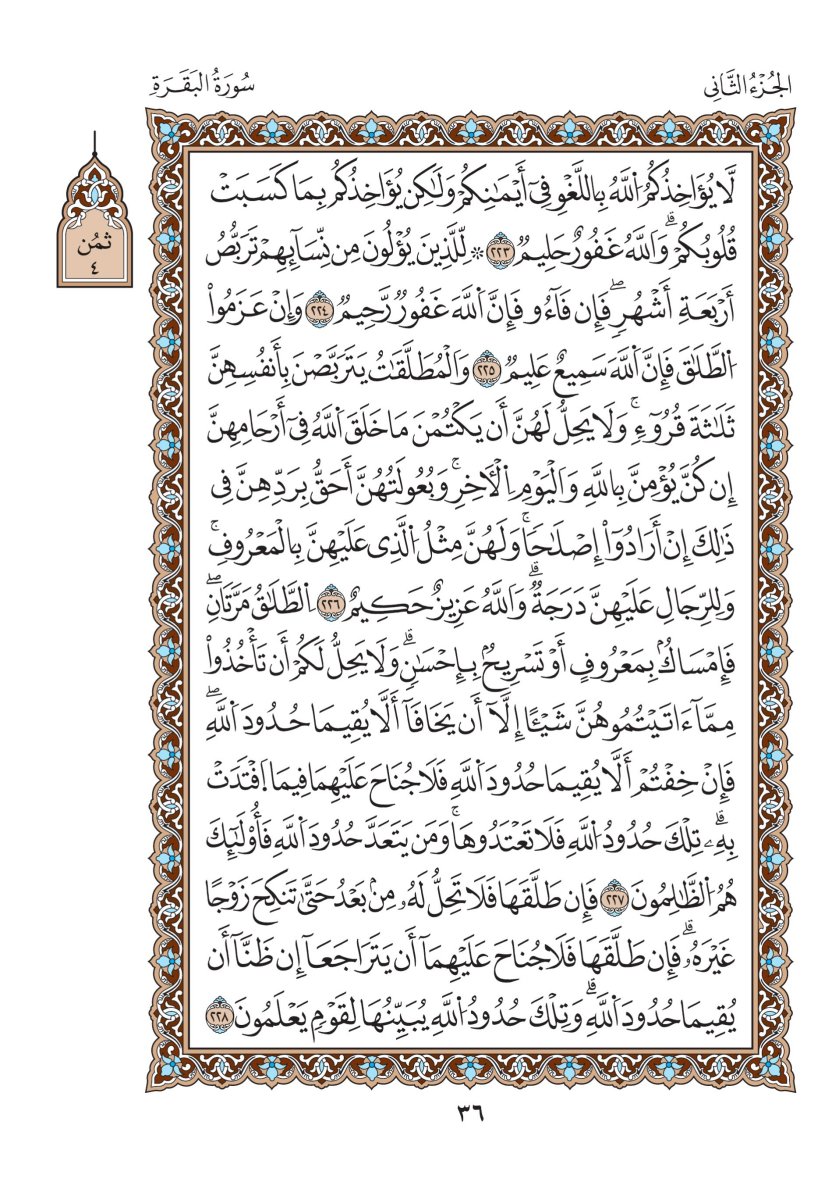 الجُزْءُ الثَّانِي
سُورَةُ البَقَرَةِ
ثُمُن
٤
لَّا يُؤَاخِذُكُمُ اُ۬للَّهُ بِاللَّغْوِ فِےٓ أَيْمَٰنِكُمْ وَلَٰكِنْ يُؤَاخِذُكُم بِمَا كَسَبَتْ
قُلُوبُكُمْۗ وَاللَّهُ غَفُورٌ حَلِيمٌ ٢٢٣ ۞ لِّلَّذِينَ يُؤْلُونَ مِن نِّسَآئِهِمْ تَرَبُّصُ
أَرْبَعَةِ أَشْهُرٍۖ فَإِن فَآءُو فَإِنَّ اَ۬للَّهَ غَفُورٌ رَّحِيمٌ ٢٢٤ وَإِنْ عَزَمُواْ
اُ۬لطَّلَٰقَ فَإِنَّ اَ۬للَّهَ سَمِيعٌ عَلِيمٌ ٢٢٥ وَالْمُطَلَّقَٰتُ يَتَرَبَّصْنَ بِأَنفُسِهِنَّ
ثَلَٰثَةَ قُرُوٓءٍۚ وَلَا يَحِلُّ لَهُنَّ أَن يَكْتُمْنَ مَا خَلَقَ اَ۬للَّهُ فِےٓ أَرْحَامِهِنَّ
إِن كُنَّ يُؤْمِنَّ بِاللَّهِ وَالْيَوْمِ اِ۬لْأٓخِرِۚ وَبُعُولَتُهُنَّ أَحَقُّ بِرَدِّهِنَّ فِے
ذَٰلِكَ إِنْ أَرَادُوٓاْ إِصْلَٰحٗاۚ وَلَهُنَّ مِثْلُ اُ۬لَّذِے عَلَيْهِنَّ بِالْمَعْرُوفِۚ
وَلِلرِّجَالِ عَلَيْهِنَّ دَرَجَةٌۗ وَاللَّهُ عَزِيزٌ حَكِيمٌ ٢٢٦ اِ۬لطَّلَٰقُ مَرَّتَٰنِۖ
فَإِمْسَاكُۢ بِمَعْرُوفٍ أَوْ تَسْرِيحُۢ بِإِحْسَٰنٍۗ وَلَا يَحِلُّ لَكُمْ أَن تَأْخُذُواْ
مِمَّآ ءَاتَيْتُمُوهُنَّ شَيْـًٔا إِلَّآ أَن يَخَافَآ أَلَّا يُقِيمَا حُدُودَ اَ۬للَّهِۖ
فَإِنْ خِفْتُمْ أَلَّا يُقِيمَا حُدُودَ اَ۬للَّهِ فَلَا جُنَاحَ عَلَيْهِمَا فِيمَا اَ۪فْتَدَتْ
بِهِۦۗ تِلْكَ حُدُودُ اُ۬للَّهِ فَلَا تَعْتَدُوهَاۚ وَمَن يَتَعَدَّ حُدُودَ اَ۬للَّهِ فَأُوْلَٰٓئِكَ
هُمُ اُ۬لظَّٰلِمُونَ ٢٢٧ فَإِن طَلَّقَهَا فَلَا تَحِلُّ لَهُۥ مِنۢ بَعْدُ حَتَّىٰ تَنكِحَ زَوْجًا
غَيْرَهُۥۗ فَإِن طَلَّقَهَا فَلَا جُنَاحَ عَلَيْهِمَآ أَن يَتَرَاجَعَآ إِن ظَنَّآ أَن
يُقِيمَا حُدُودَ اَ۬للَّهِۗ وَتِلْكَ حُدُودُ اُ۬للَّهِ يُبَيِّنُهَا لِقَوْمٍ يَعْلَمُونَ ٢٢٨
٣٦